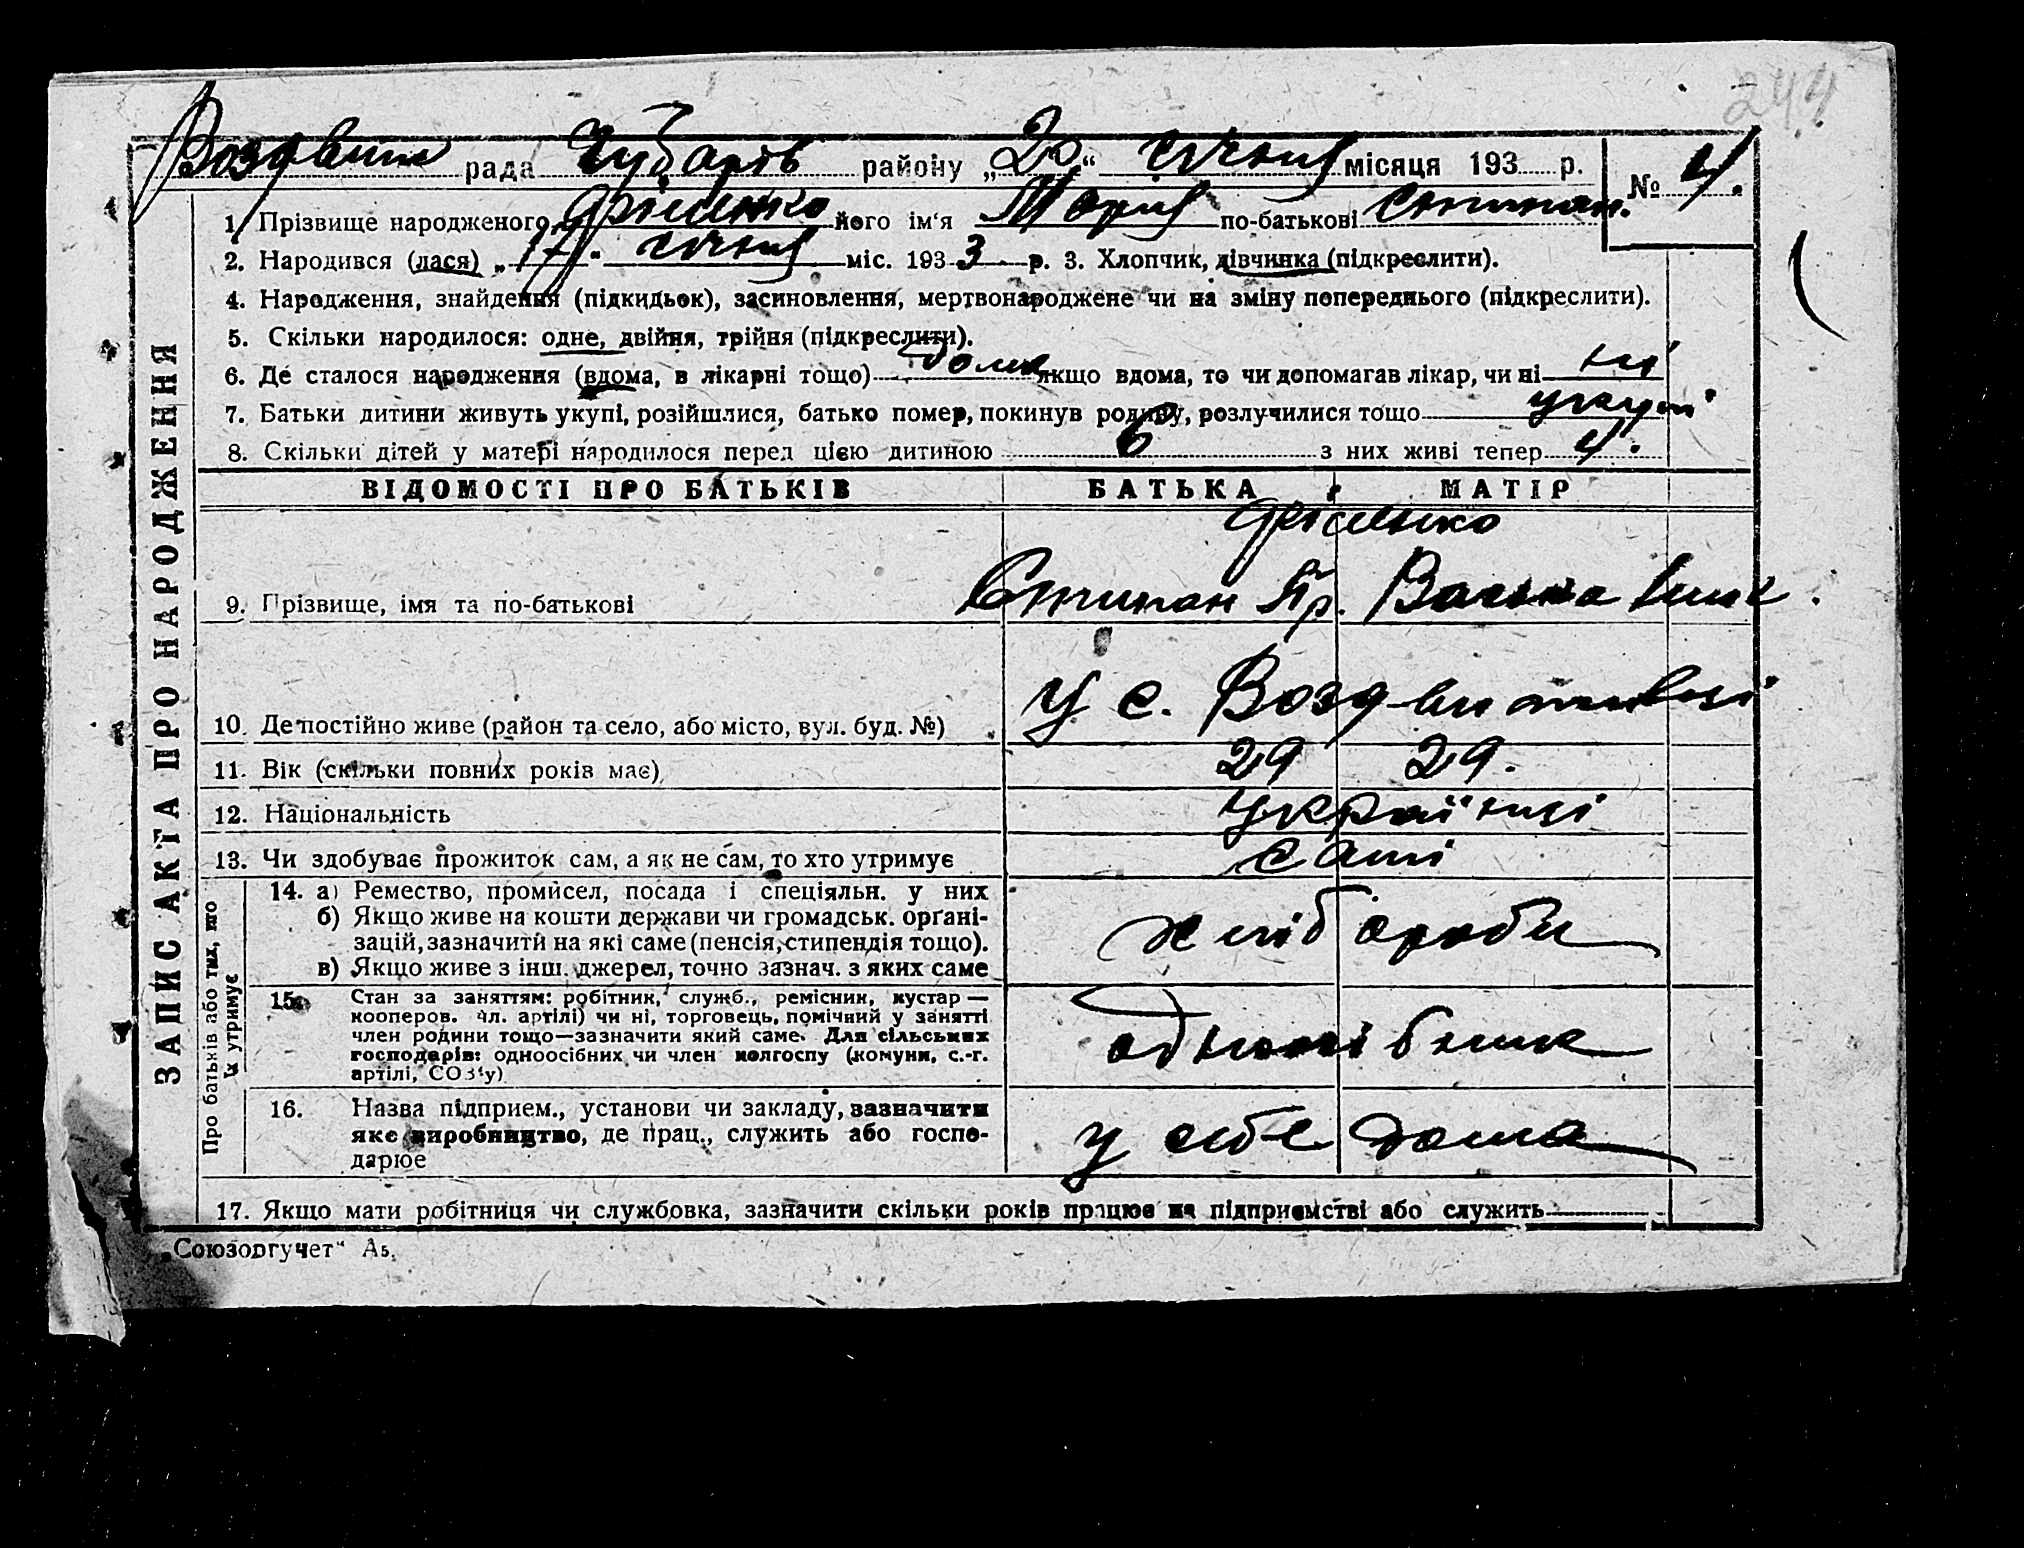 244
Воздвиж рада Чубарів району „20“ січня місяця 193 р. № 4.
1. Прізвище народженого його ім‘я Марія по-батькові Степан.
2. Народився (лася) „17“ січня міс. 1933 р. 3. Хлопчик, дівчинка (підкреслити).
4. Народження, знайдення (підкидьок), засиновлення, мертвонароджене чи на зміну попереднього (підкреслити).
5. Скільки народилося: одне, двійня, трійня (підкреслити).
6. Де сталося народження (вдома, в лікарні тощо) дома якщо вдома, то чи допомагав лікар, чи ні ні
7. Батьки дитини живуть укупі, розійшлися, батько помер, покинув родину, розлучилися тощо укупі
8. Скільки дітей у матері народилося перед цією дитиною 6 з них живі тепер 4.
ЗАПИС АКТА ПРО НАРОДЖЕННЯ
ВІДОМОСТІ ПРО БАТЬКІВ БАТЬКА МАТІР
9. Прізвище, імя та по-батькові Степан Пр.
10. Де постійно живе (район та село, або місто, вул. буд. №) у с.
11. Вік (скільки повних років має) 29 29.
12. Національність українці
13. Чи здобуває прожиток сам, а як не сам, то хто утримує самі
Про батьків або тих, що їх утримує
14. а) Ремество, промисел, посада і спеціяльн. у них
б) Якщо живе на кошти держави чи громадськ. органі-
зацій, зазначити на які саме (пенсія, стипендія тощо).
в) Якщо живе з інш. джерел, точно зазнач. з яких саме
хлібороби
15. Стан за заняттям: робітник, служб., ремісник, кустар —
кооперов. чл. артілі) чи ні, торговець, помічний у занятті
член родини тощо—зазначити який саме. Для сільських
господарів: одноосібних чи член колгоспу (комуни, с.-г.
артілі, СОЗ‘у)
одноосібник
16. Назва підприєм., установи чи закладу, зазначити
яке виробництво, де прац., служить або госпо-
дарює
у себе дома
17. Якщо мати робітниця чи службовка, зазначити скільки років працює на підприємстві або служить
„Союзоргучет“ А5.